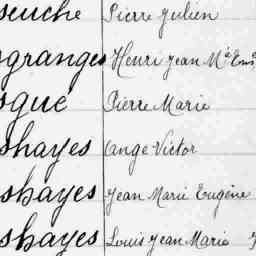 seuche Pierre Julien
granges Henri Jean M^ie Em^e
sgué Pierre Marie
shayes Ange Victor
shayes Jean Marie Eugène
shayes Louis Jean Marie